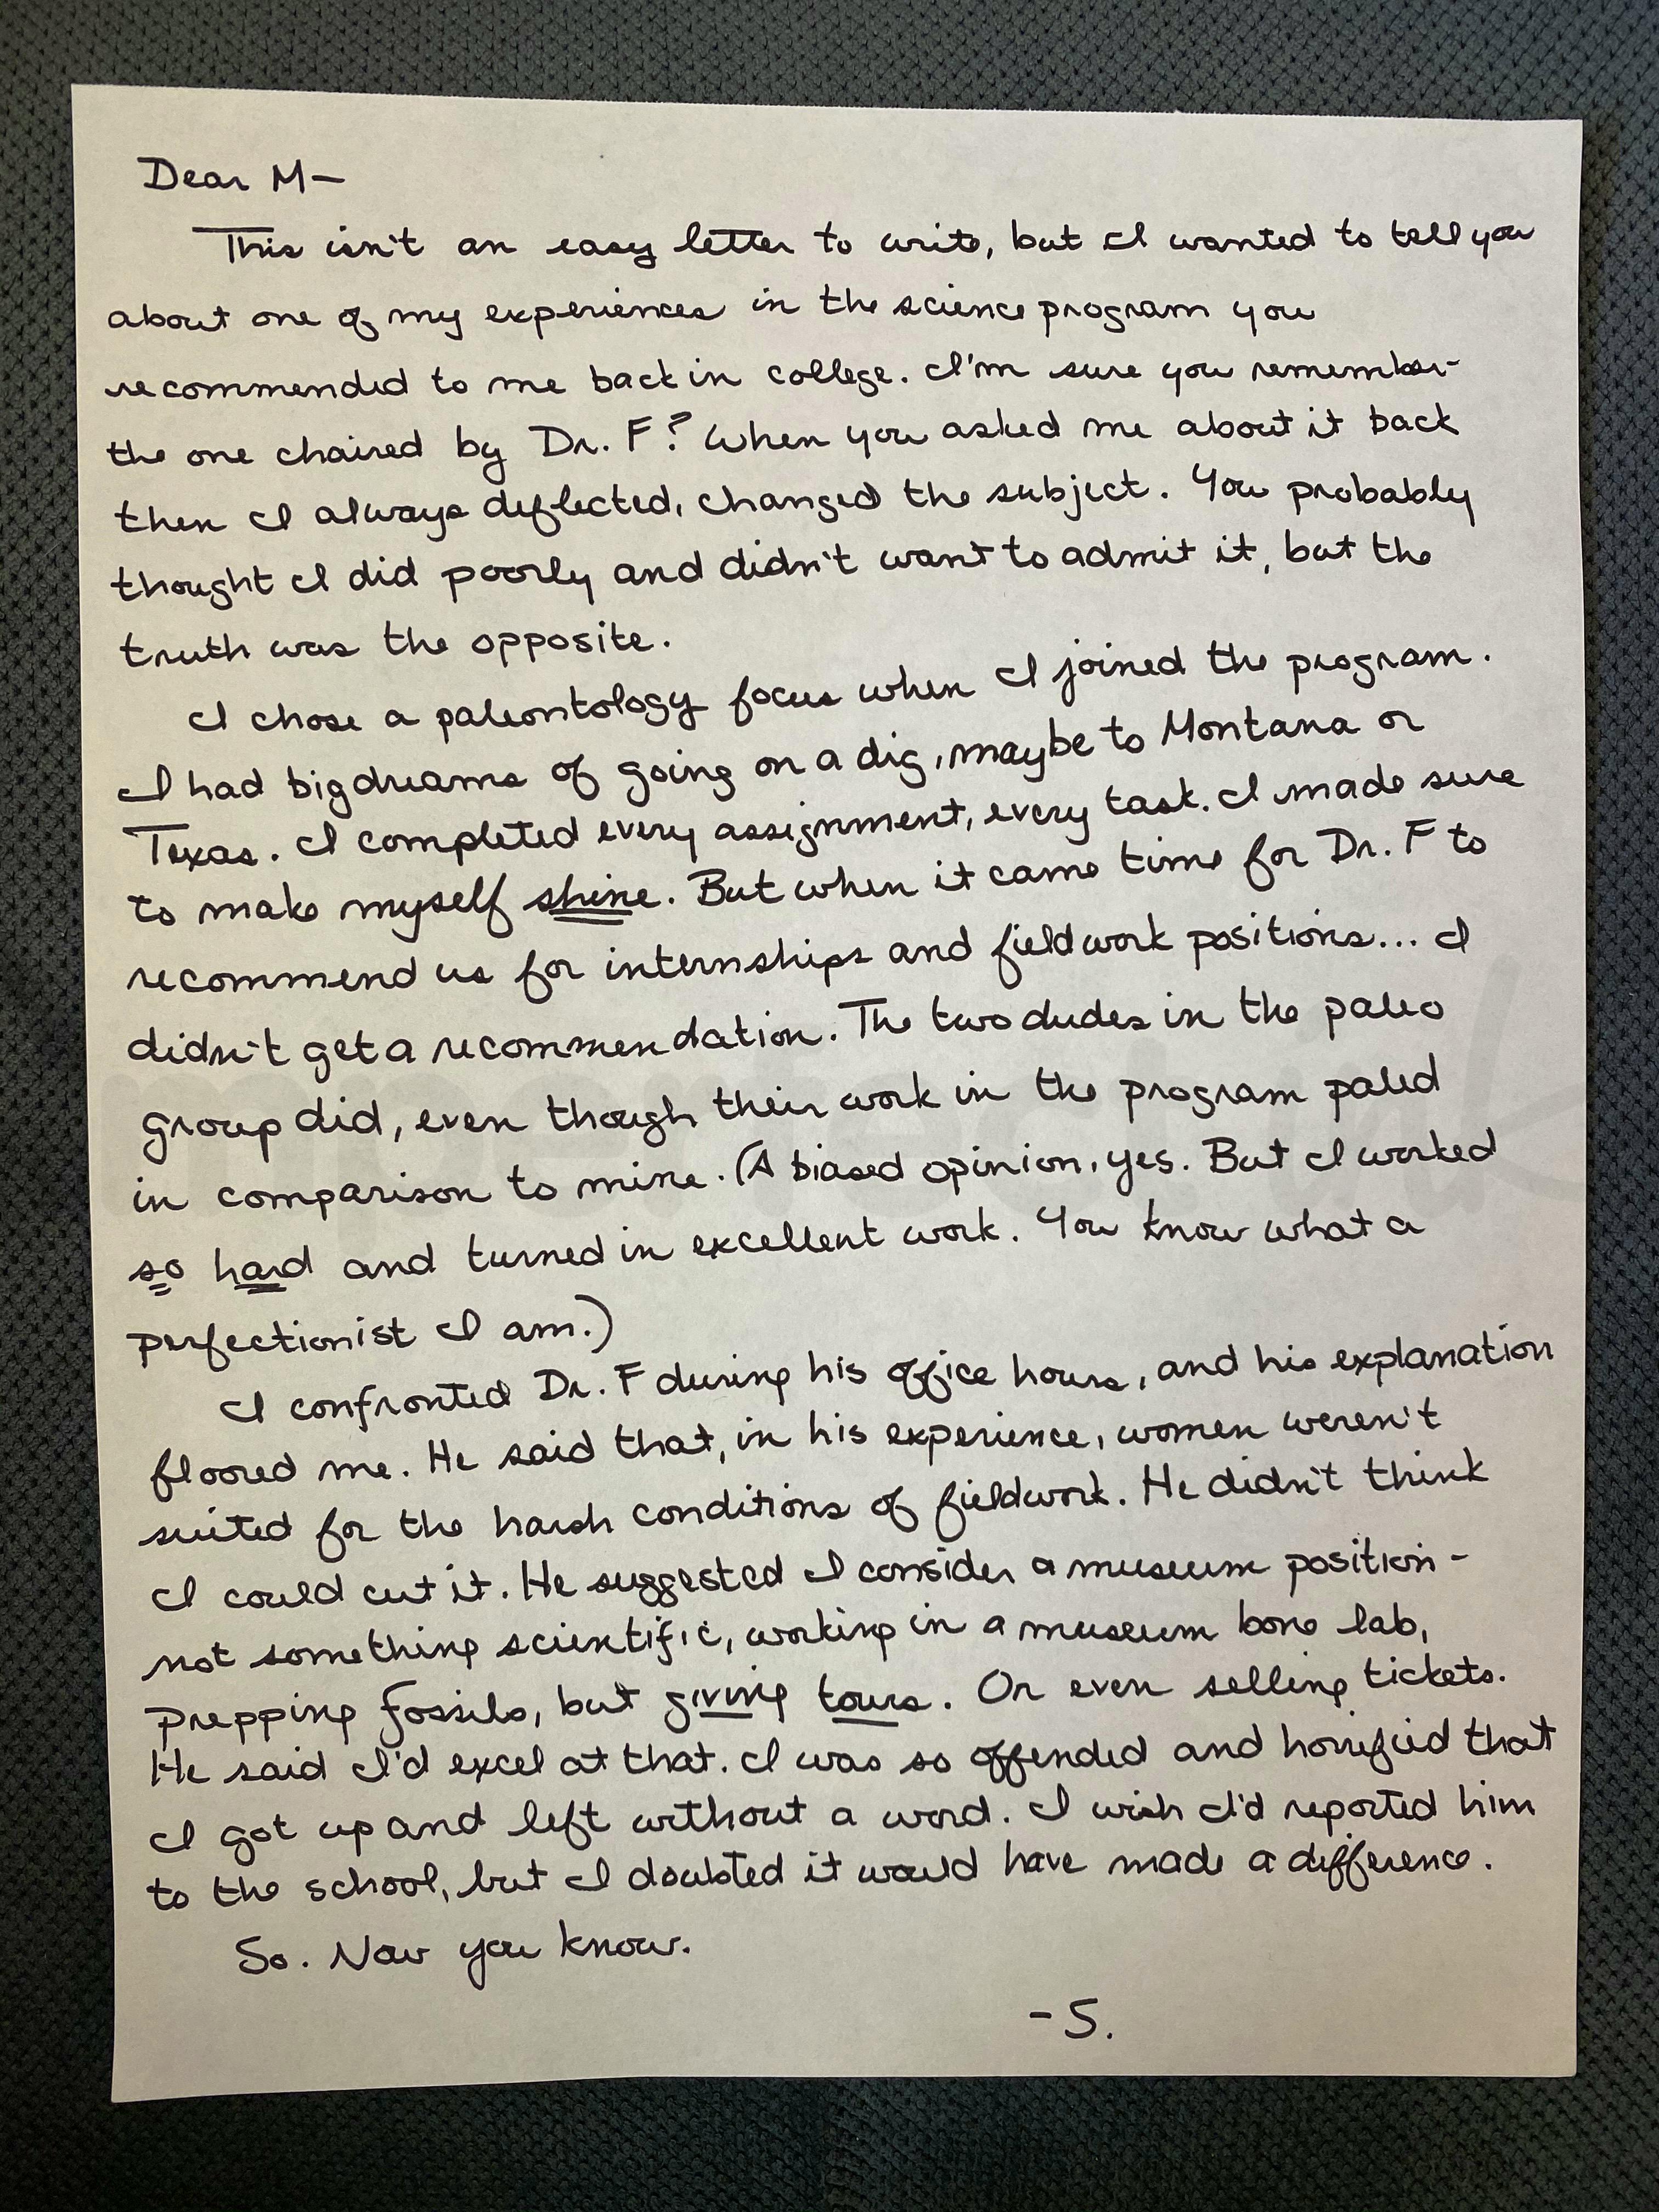 Dear M—
This isn't an easy letter to write, but I wanted to tell you
about one of my experiences in the science program you
recommended to me back in college. I'm sure you remember-
the one chaired by Dr. F? When you asked me about it back
then I always deflected, changed the subject. You probably
thought I did poorly and didn't want to admit it, but the
truth was the opposite.
I chose a paleontology focus when I joined the program.
I had big dreams of going on a dig, maybe to Montana or
Texas. I completed every assignment, every task. I made sure
to make myself shine. But when it came time for Dr. F to
recommend us for internships and fieldwork positions... I
didn't get a recommendation. The two dudes in the paleo
group did, even though their work in the program paled
in comparison to mine. (A biased opinion, yes. But I worked
so hard and turned in excellent work. You know what a
perfectionist I am.)
I confronted Dr. F during his office hours, and his explanation
floored me. He said that, in his experience, women weren't
suited for the harsh conditions of fieldwork. He didn't think
I could cut it. He suggested I consider a museum position-
not something scientific, working in a museum bone lab,
prepping fossils, but giving tours. Or even selling tickets.
He said I'd excel at that. I was so offended and horrified that
I got up and left without a word. I wish I'd reported him
to the school, but I doubted it would have made a difference.
So. Now you know.
-S.